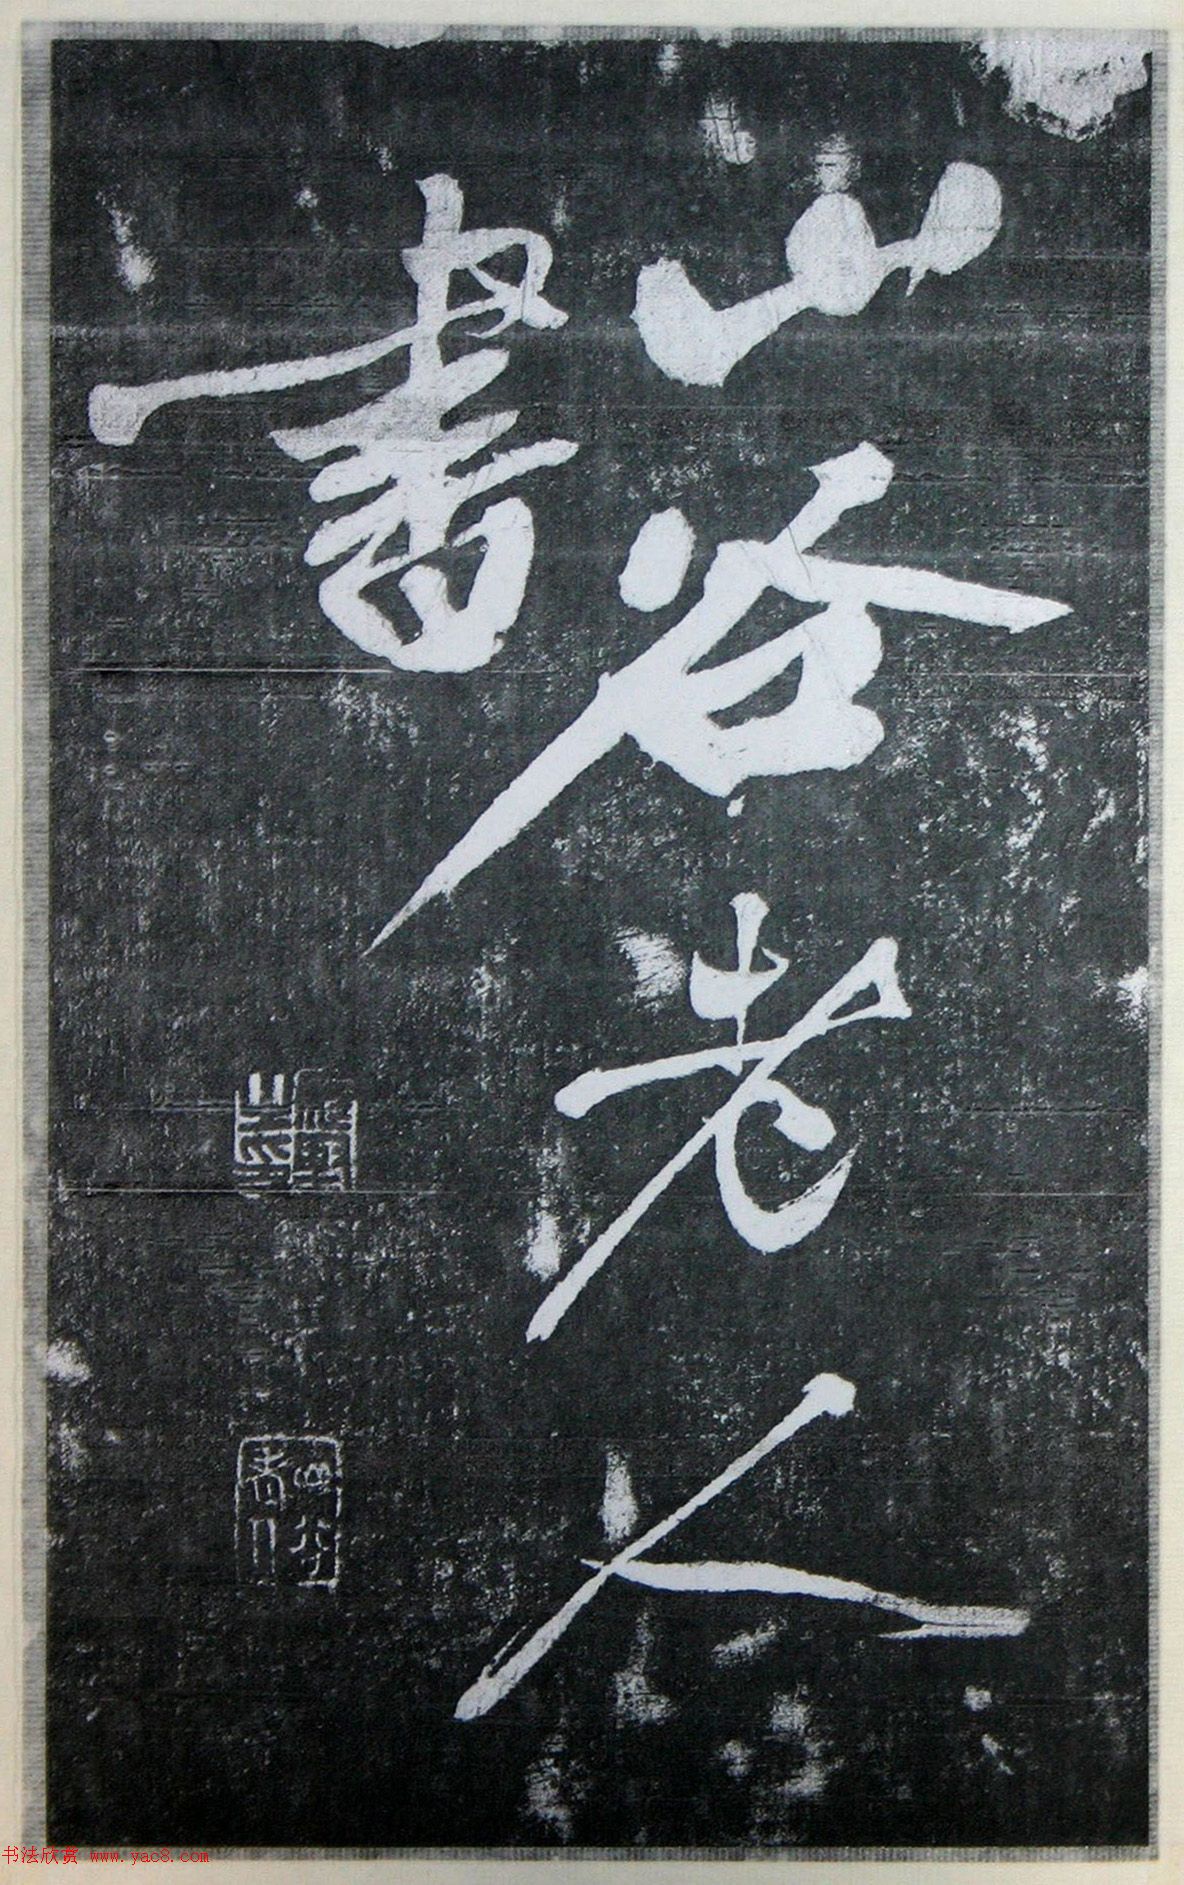 山谷老人
書
山谷
老人
书法欣赏 www.yac8.com